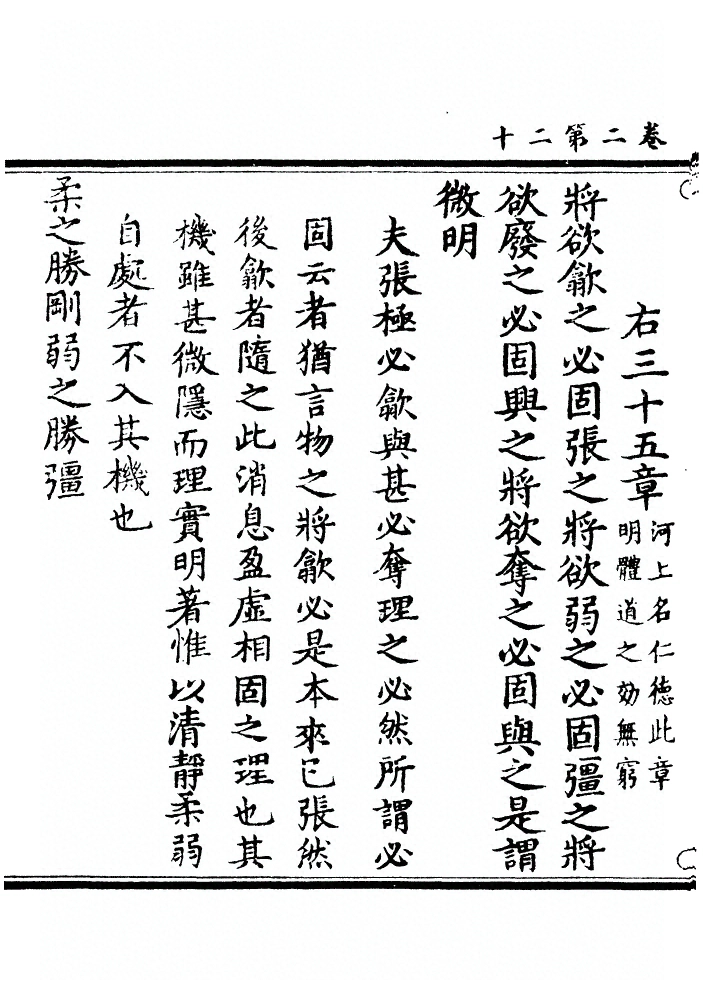 卷二第二十
右三十五章
河上名仁德此章
明體道之効無窮
將欲歙之必固張之將欲弱之必固彊之將
欲廢之必固興之將欲奪之必固與之是謂
微明
夫張極必歙與甚必奪理之必然所謂必
固云者猶言物之將歙必是本來已張然
後歙者隨之此消息盈虛相固之理也其
機雖甚微隱而理實明著惟以清靜柔弱
自處者不入其機也
柔之勝剛弱之勝彊